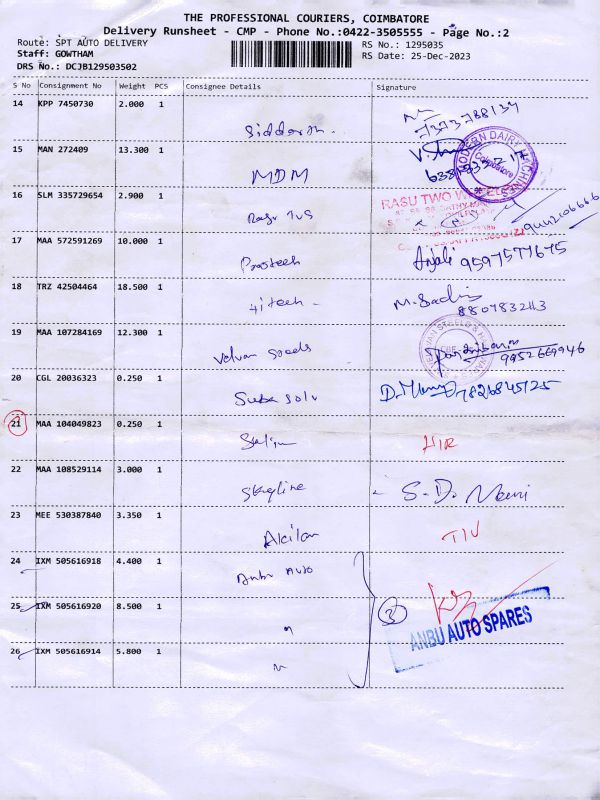 THE PROFESSIONAL COURIERS, COIMBATORE
Delivery Runsheet - CMP - Phone No.:0422-3505555 - Page No.:2
Route: SPT AUTO DELIVERY
RS No.: 1295035
Staff: GOWTHAM
RS Date: 25-Dec-2023
DRS No.: DCJB129503502
S No Consignment No Weight PCS Consignee Details Signature
14 KPP 7450730 2.000 1 Siddarth. 7373788134
15 MAN 272409 13.300 1 MDM
MODERN DAIRY MACHINES
Coimbatore
16 SLM 335729654 2.900 1 Rasu TVS
RASU TWO WHEELERS
17 MAA 572591269 10.000 1 Prostech Anjali 9597577675
18 TRZ 42504464 18.500 1 Hitech -
19 MAA 107284169 12.300 1 Velvan steels 9952669946
20 CGL 20036323 0.250 1 7826845725
21 MAA 104049823 0.250 1
22 MAA 108529114 3.000 1 Skyline S.D. Mani
23 MEE 530387840 3.350 1 Akilan
24 IXM 505616918 4.400 1 Anbu Auto
25 IXM 505616920 8.500 1 " 3
ANBU AUTO SPARES
26 IXM 505616914 5.800 1 "